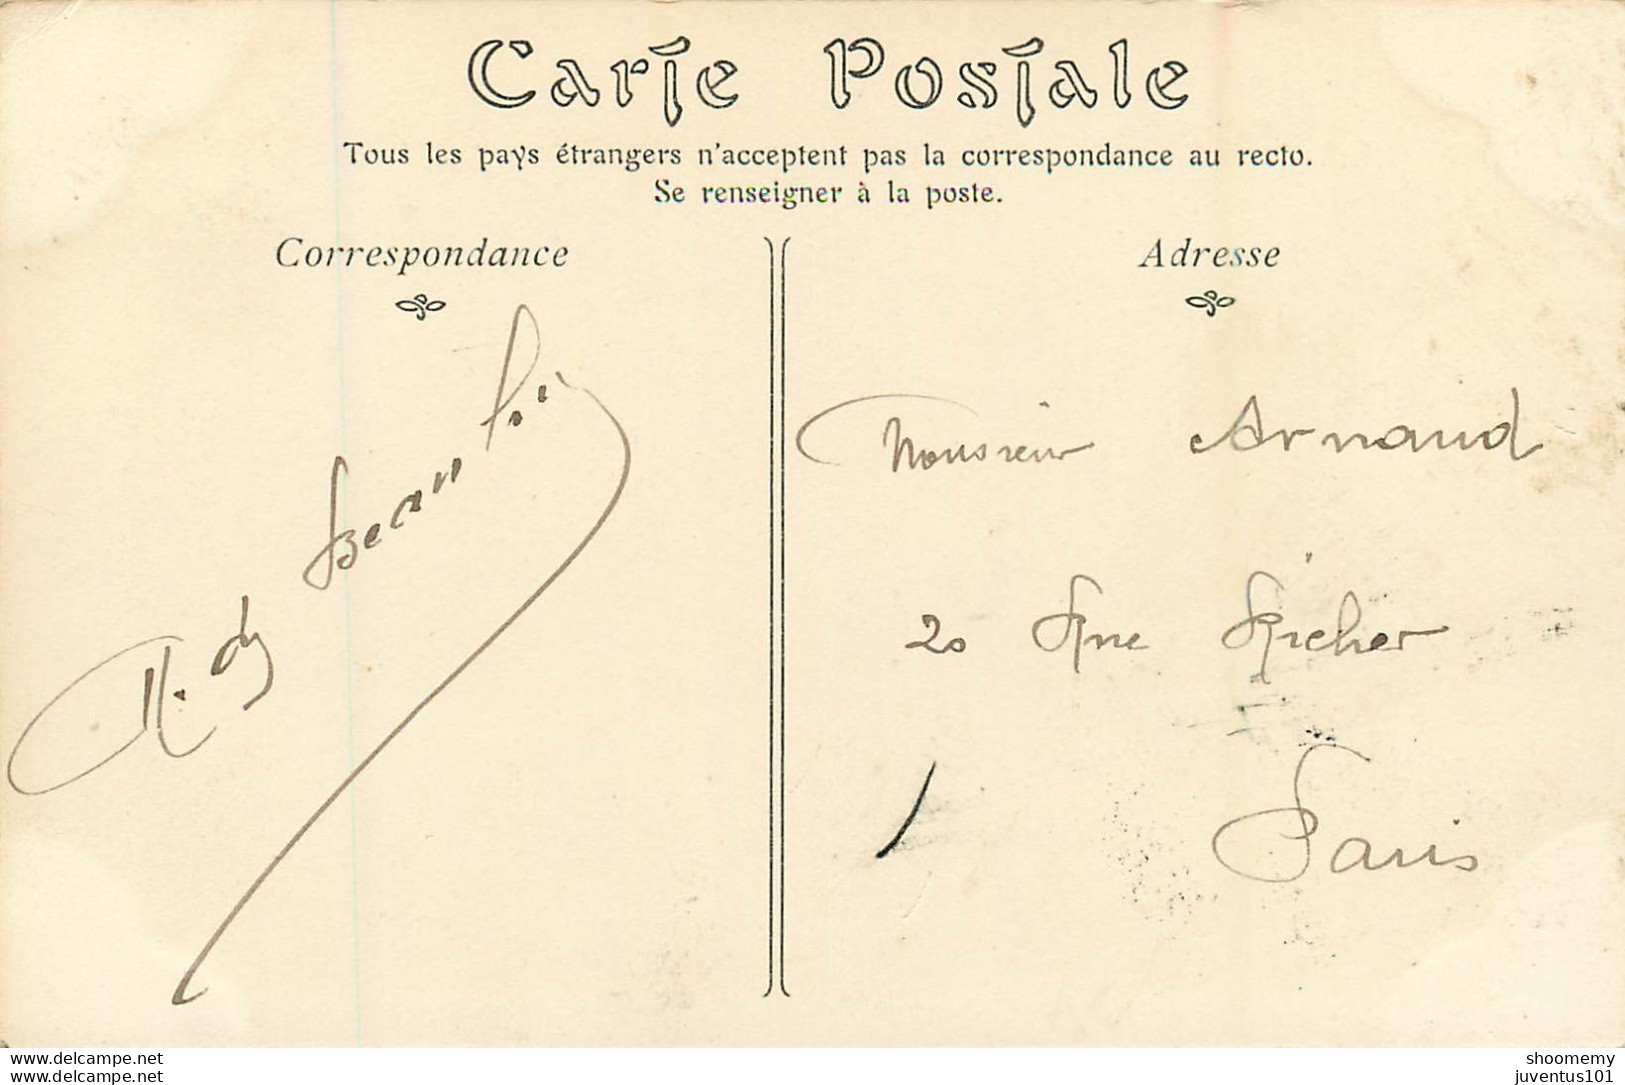 Carte Postale
Tous les pays étrangers n'acceptent pas la correspondance au recto.
Se renseigner à la poste.
Correspondance
Adresse
Monsieur Arnaud
20 Rue Richer
Paris
www.delcampe.net
www.delcampe.net
shoomemy
juventus101